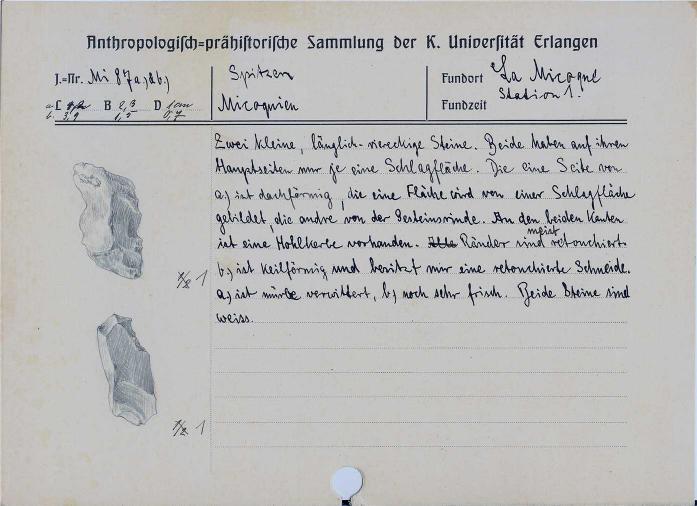 Anthropologisch=prähistorische Sammlung der K. Universität Erlangen
J.=Nr. Mi 87a,)&b.)
Spitzen
Fundort La Micoque
Station 1.
a. L B 2,3 D 1cm
b. 3,9 1,5 0,7
Micoquien
Fundzeit
Zwei kleine, länglich-viereckige Steine. Beide haben auf ihren
Hauptseiten nur je eine Schlagfläche. Die eine Seite von
a,) ist dachförmig, die eine Fläche wird von einer Schlagfläche
gebildet, die andre von der Gesteinsrinde. An den beiden Kanten
ist eine Hohlkerbe vorhanden. Ränder sind meist retouchiert.
b,) ist keilförmig und besitzt nur eine retouchierte Schneide.
a,) ist mürbe verwittert, b,) noch sehr frisch. Beide Steine sind
weiss.
1
1